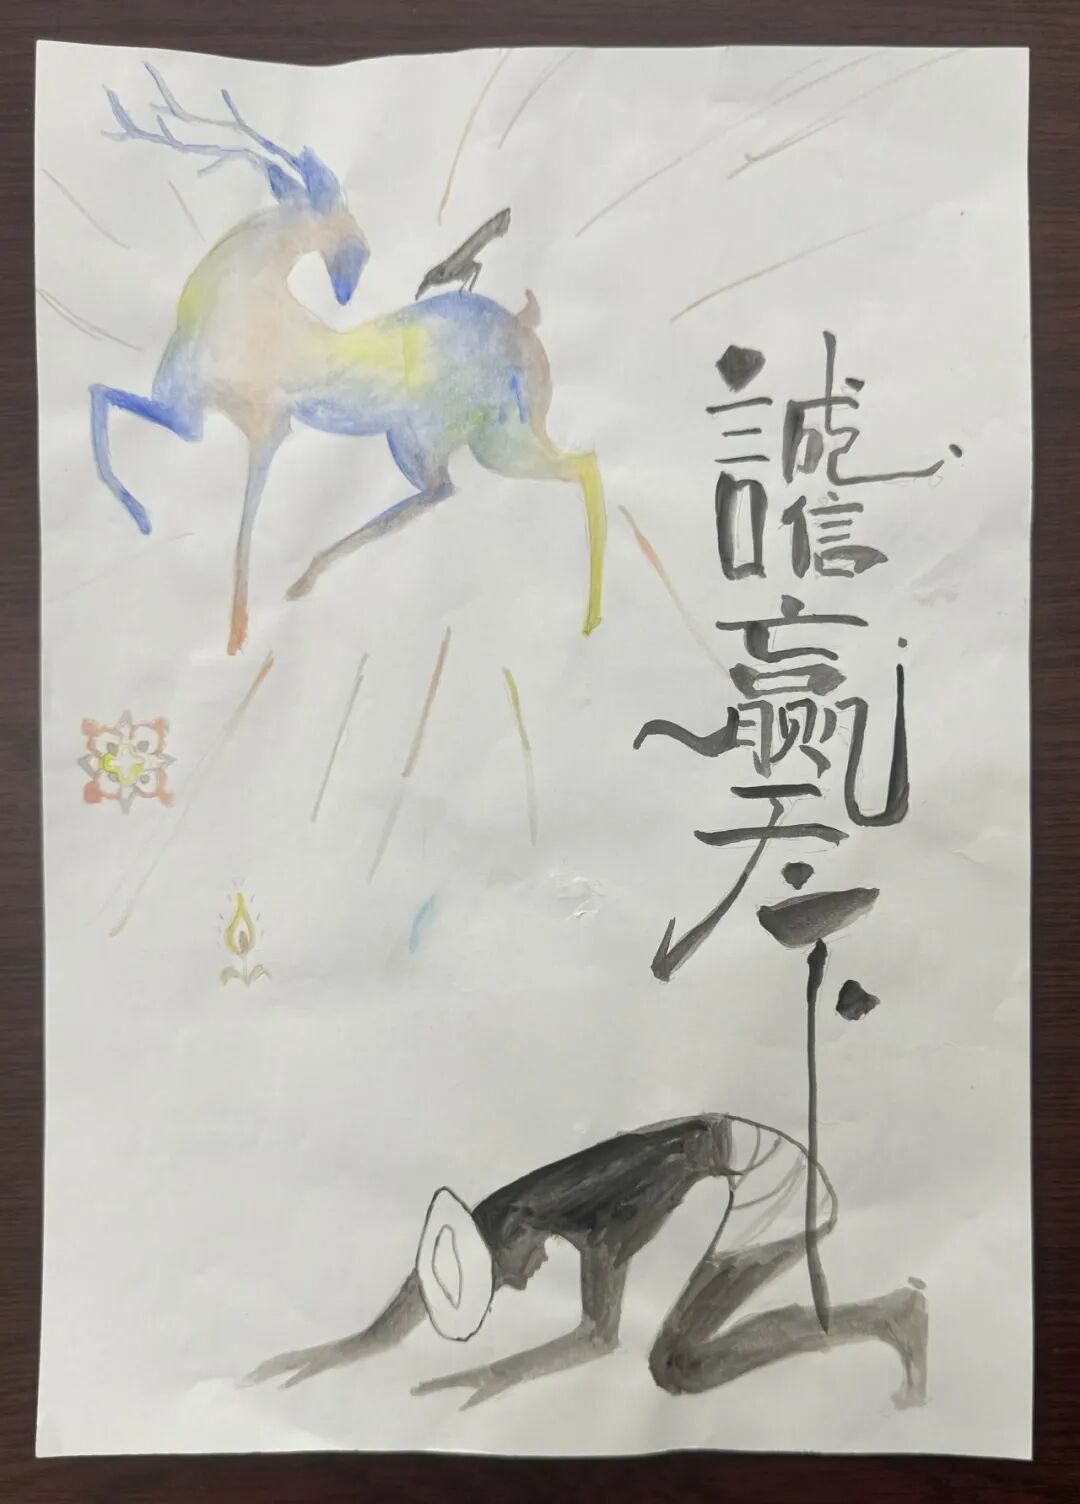 誠信赢天下